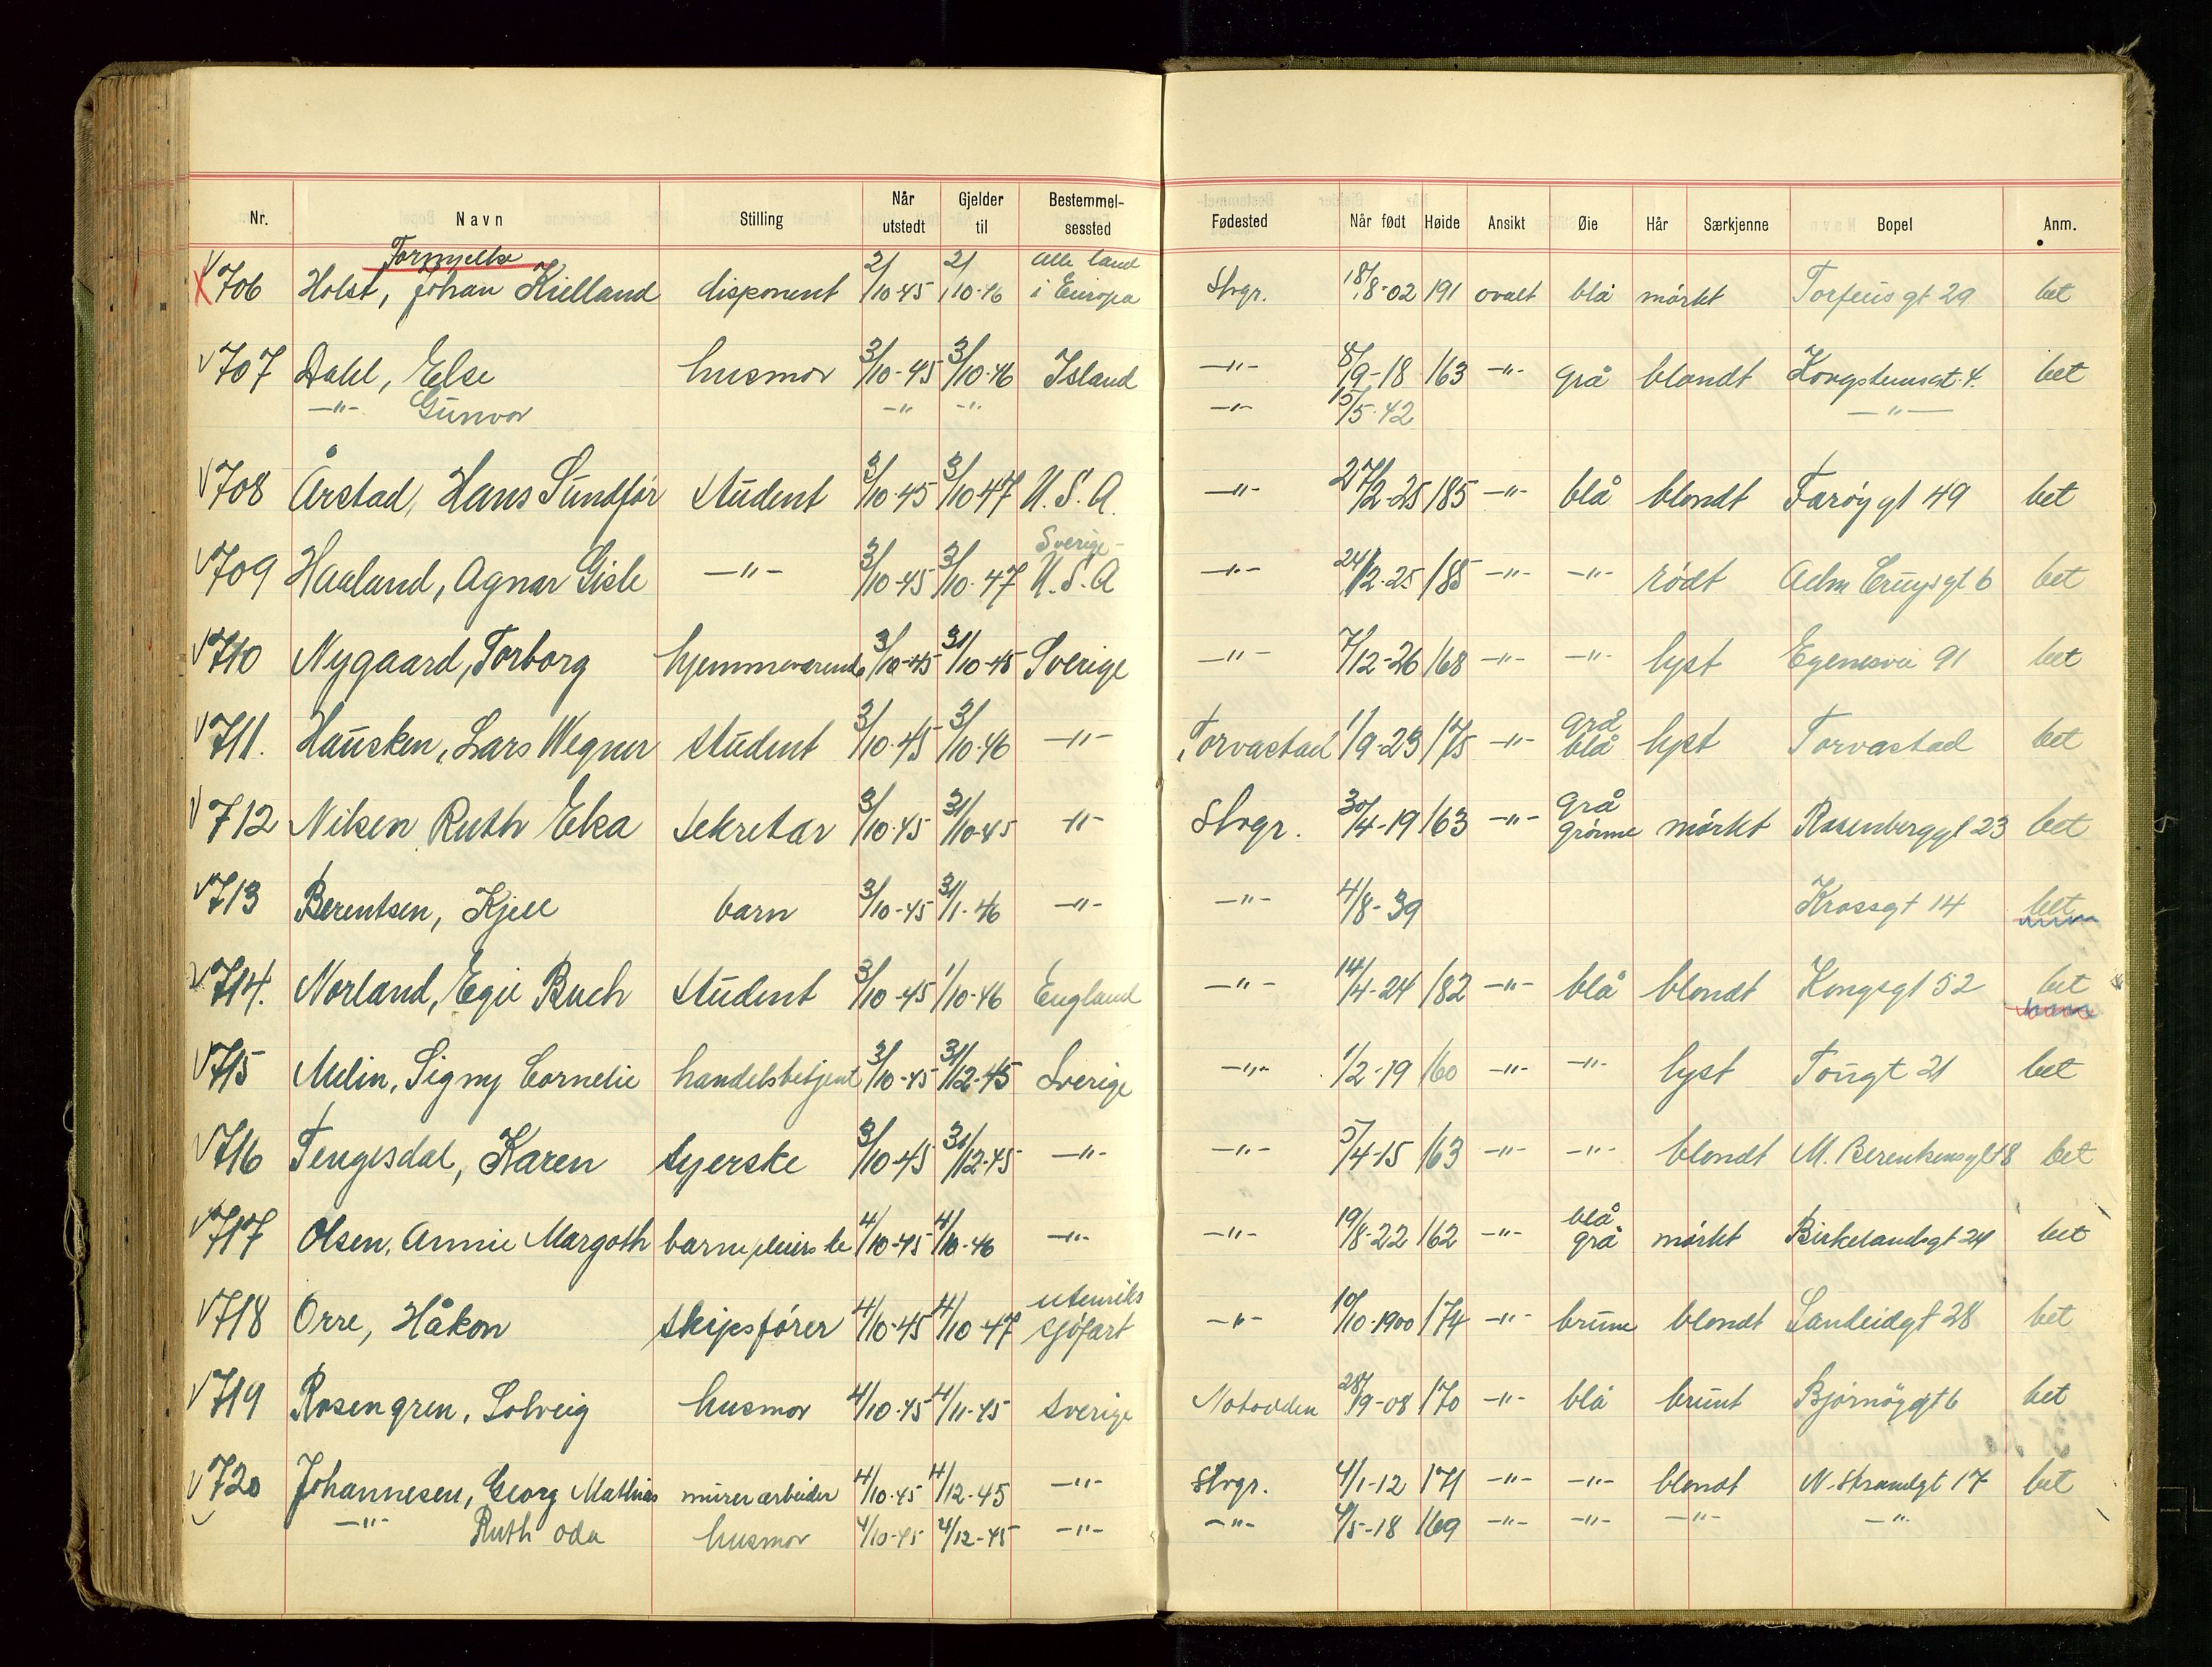 Nr. Navn Stilling Når utstedt Gjelder til Bestemmel-sessted Fødested Når født Høide Ansikt Øie Hår Særkjenne Bopel Anm.
Fornyelse alle land
706 Holst, Johan Kielland disponent 2/10-45 2/10-46 i Europa Stvgr. 18/8-02 191 ovalt blå mørkt Torfeüs gt 29 bet
707 Dahl, Else husmor 3/10-45 3/10-46 Island -"- 8/9-18 163 -"- grå blondt gt. 4. bet
-"- Günvor -"- -"- -"- 15/5-42 -"-
708 Årstad, Hans Sündfør stüdent 3/10-45 3/10-47 U.S.A. -"- 27/2-25 185 -"- blå blondt Farøy gt 49 bet
Sverige-
709 Haaland, Agnar Gisle -"- 3/10-45 3/10-47 U.S.A -"- 24/12-25 185 -"- -"- rødt Adm Crüysgt 6 bet
710 Nygaard, Torborg hjemmeværende 3/10-45 31/10-45 Sverige -"- 7/12-26 168 -"- -"- lyst Egenesvei 91 bet
grå
711. Haüsken, Lars Wegner stüdent 3/10-45 3/10-46 -"- Torvastad 1/9-23 175 -"- blå lyst Torvastad bet
grå
712 Nilsen Ruth Elsa sekretær 3/10-45 31/10-45 -"- Stvgr. 30/4-19 163 -"- grønne mørkt Rosenberggt 23 bet
713 Berentsen, Kjell barn 3/10-45 3/1-46 -"- -"- 4/8-39 Krossgt 14 bet
714. Norland, Egil Buch stüdent 3/10-45 1/10-46 England -"- 14/4-24 182 -"- blå blondt Kongsgt 52 bet
715 Melin, Signy Cornelie handelsbetjent 3/10-45 31/12-45 Sverige -"- 1/2-19 160 -"- -"- lyst Toügt 21 bet
716 Tengesdal, Karen syerske 3/10-45 31/12-45 -"- -"- 5/4-15 163 -"- -"- blondt M. Berentsensgt 18 bet
blå
717 Olsen, Annie Margoth barnepleierske 4/10-45 4/10-46 -"- -"- 19/8-22 162 -"- grå mørkt Birkelandsgt 24 bet
utenriks
718 Orre, Håkon skipsfører 4/10-45 4/10-47 sjøfart -"- 10/10-1900 174 -"- brüne blondt Sandeidgt 28 bet
719 Rosengren, Solveig husmor 4/10-45 4/11-45 Sverige Notodden 28/9-08 170 -"- blå brünt Bjørnøygt 6 bet
720 Johannesen, Georg Mathias mürerarbeider 4/10-45 4/12-45 -"- Stvgr. 4/1-12 171 -"- -"- blondt N. Strandgt 17 bet
-"- Ruth Oda husmor 4/10-45 4/12-45 -"- -"- 4/5-18 169 -"- -"- -"- -"-